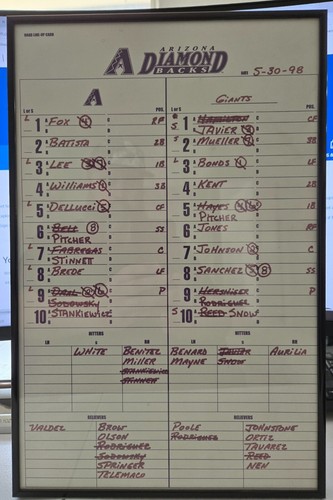 ARIZONA
DIAMOND
BACKS
DATE 5-30-98
A
GIANTS
L or S POS. L or S POS.
L 1 FOX 4 RF
S 1 HAMILTON CF
JAVIER
2 BATISTA 2B
S 2 MUELLER 3B
L 3 LEE 1B
L 3 BONDS 4 LF
4 WILLIAMS 3B
4 KENT 2B
L 5 DELLUCCI 5 CF
L 5 HAYES 1B
PITCHER
6 BELL 8 SS
PITCHER
6 JONES RF
7 FABREGAS C
STINNETT
7 JOHNSON C
8 BREDE LF
8 SANCHEZ 8 SS
9 P
SODOWSKY
9 HERSHISER P
RODRIGUEZ
10 STANKIEWICZ
S 10 REED SNOW
HITTERS HITTERS
LH SW RH LH SW RH
WHITE BENITEZ BENARD JAVIER AURILIA
MILLER MAYNE SNOW
STANKIEWICZ
STINNETT
RELIEVERS RELIEVERS
VALDEZ BROW POOLE JOHNSTONE
OLSON RODRIGUEZ ORTIZ
RODRIGUEZ TAVAREZ
SODOWSKY REED
SPRINGER NEN
TELEMACO